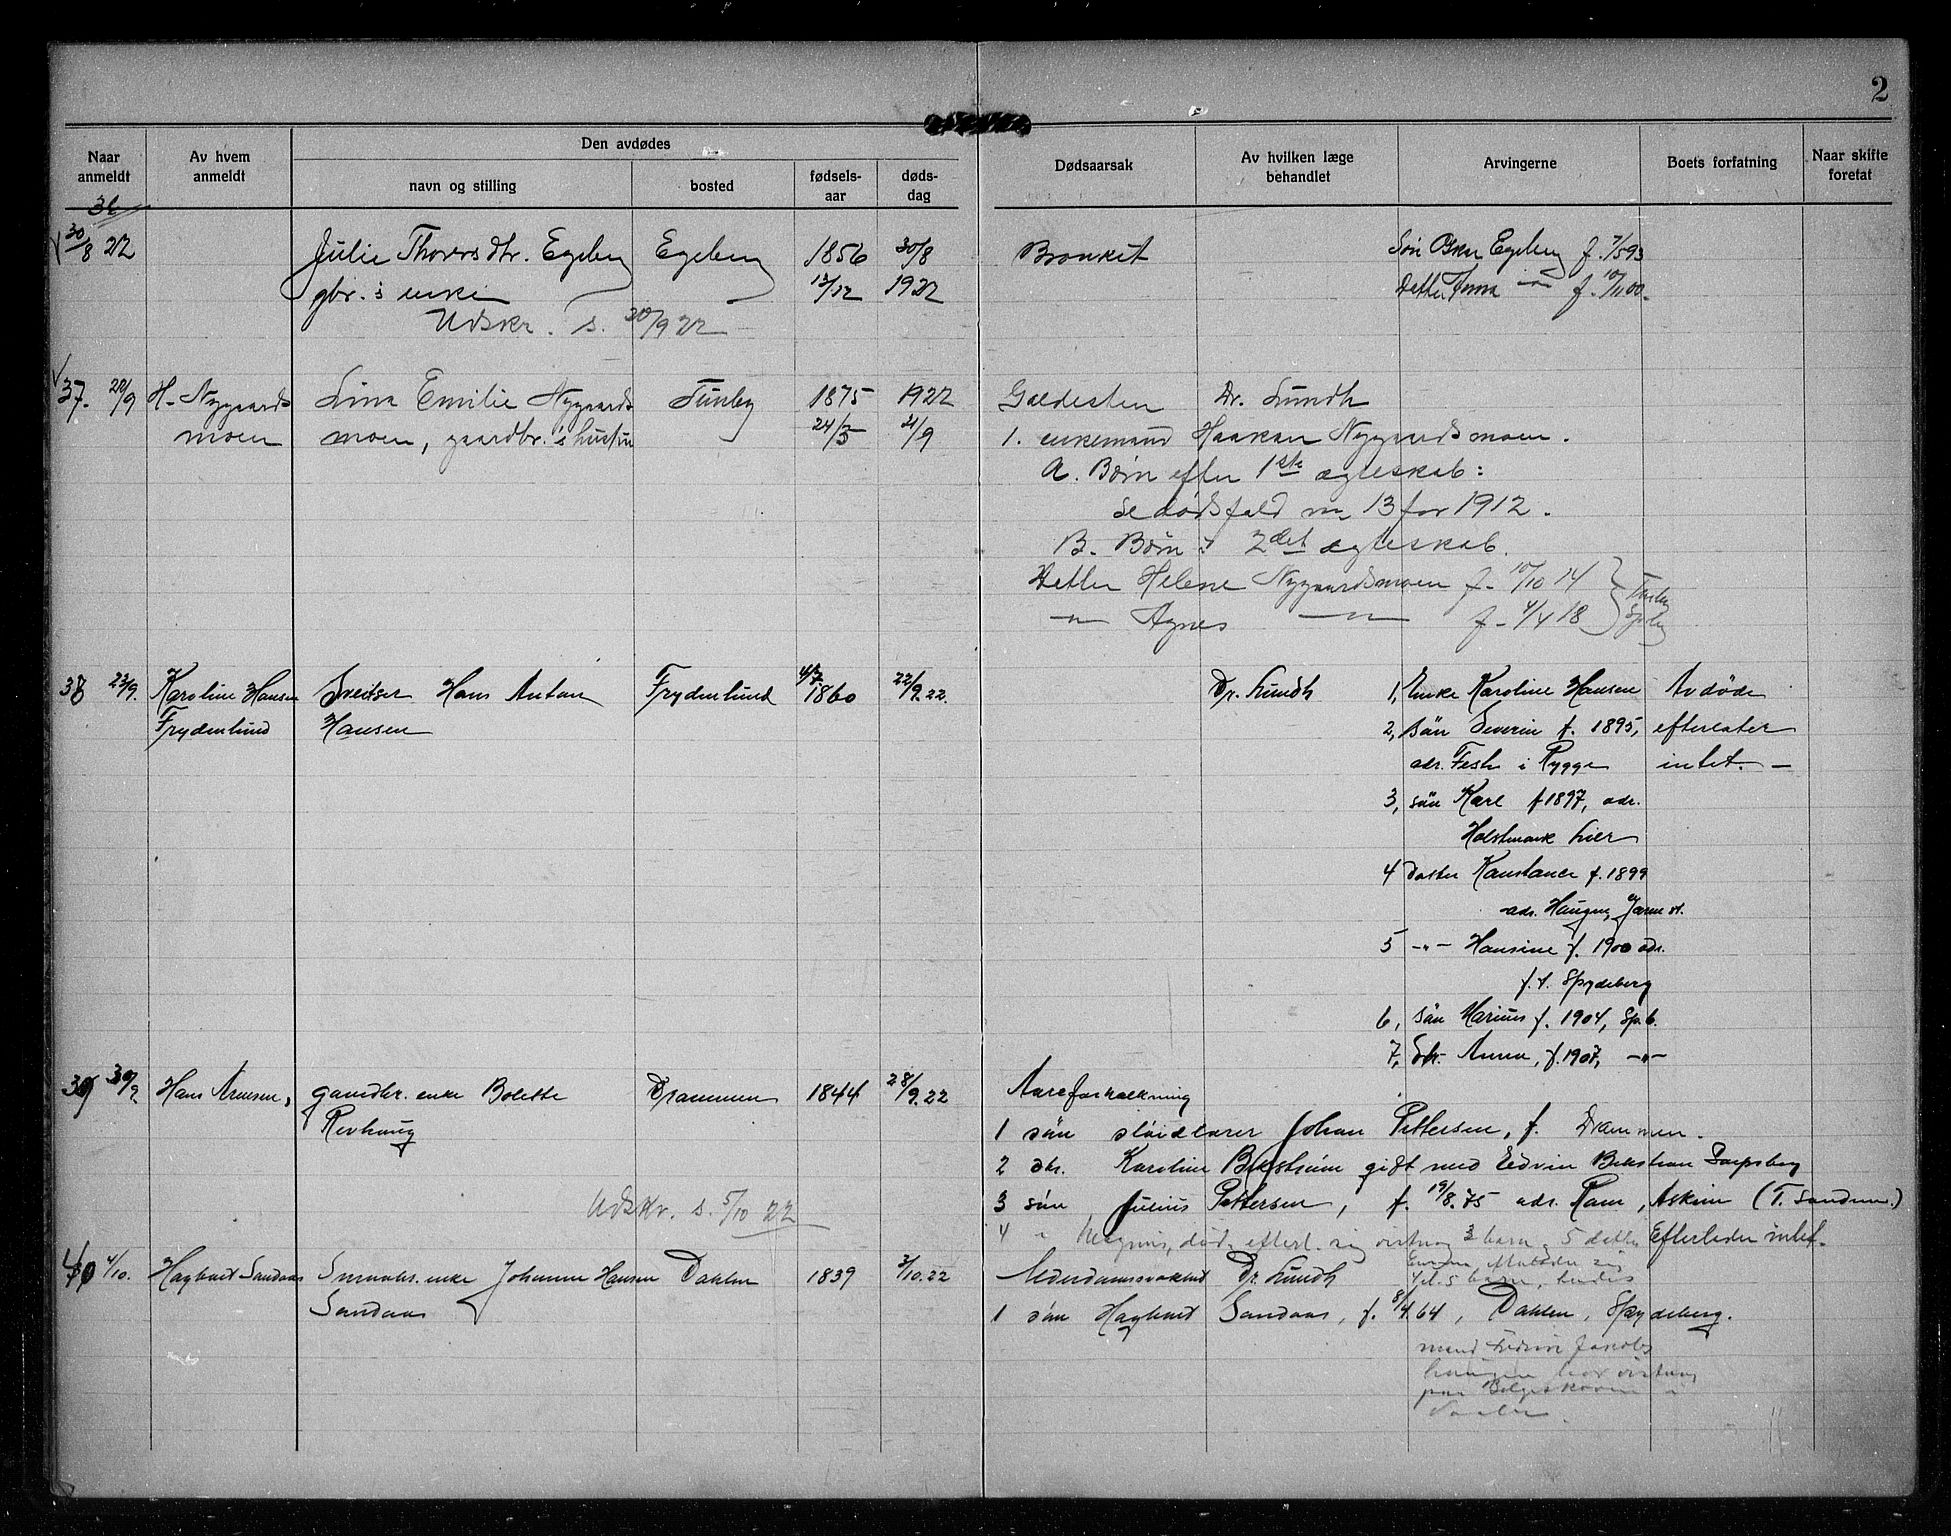 2
Naar anmeldt
Av hvem anmeldt
Den avdødes
navn og stilling
bosted
fødselsaar
dødsdag
Dødsaarsak
Av hvilken læge behandlet
Arvingerne
Boets forfatning
Naar skifte foretat
36
30/8 22 Julie Thorersdtr. Egeberg Egeberg 1856 30/8 Bronkit Søn Oskar Egeberg f. 7/5 93
gbr.s enke 12/12 1922 Datter Anna -"- f. 10/11 00.
Udskr. s. 30/9 22
37. 28/9 H. Nygaards Lina Emilie Nygaards Tunby 1875 1922 Galdesten Dr. Lundh
moen moen, gaardbr.'s hustru 24/5 21/9 1. enkemand Haakan Nygaardsmoen.
A. Børn efter 1ste ægteskab:
Se dødsfald nr 13 for 1912.
B. Børn i 2det ægteskab.
Datter Helene Nygaardsmoen f. 10/10 14
-"- Agnes -"- f. 4/4 18
38 23/9. Karoline Hansen Sveitser Hans Anton Frydenlund 4/7 1860 22/9.22. Dr. Lundh 1, Enke Karoline Hansen Avdøde
Frydenlund Hansen 2, Søn Severin f. 1895, efterlater
adr. Festn i Rygge intet. -
3, søn Karl f 1897, adr.
Holstmark Lier
4 Datter Konstance f. 1899
adr. Haugen,
5 -"- Hansine f. 1900 adr.
f.t. Spydeberg
6, søn Marius f. 1904, Spb.
7, Dtr. Anna, f. 1907, -"-
39 30/9. Hans Arnesen, gaardbr. enke Bolette Drammen 1844 28/9.22 Aareforkalkning
Revhaug 1 søn sløidlærer Johan Pettersen, f. Drammen.
2 dtr. Karoline gift med Edvin Sarpsborg
Udskr. s. 5/10 22 3 søn Julius Pettersen, f. 19/8.75 adr. Ram, Askim (T. Sandmo.)
4 " Magnus, død, efterl. sig 3 barn. 5 datter Efterleder intet.
40 4/10. Hagbart Sandaas Smaabr. enke Johanne Hansen Dahlen 1839 3/10.22 Alderdomssvakhet Dr. Lundh
5 barn,
Sandaas 1 søn Hagbart Sandaas, f. 8/4.64, Dahlen, Spydeberg.
mand
paa